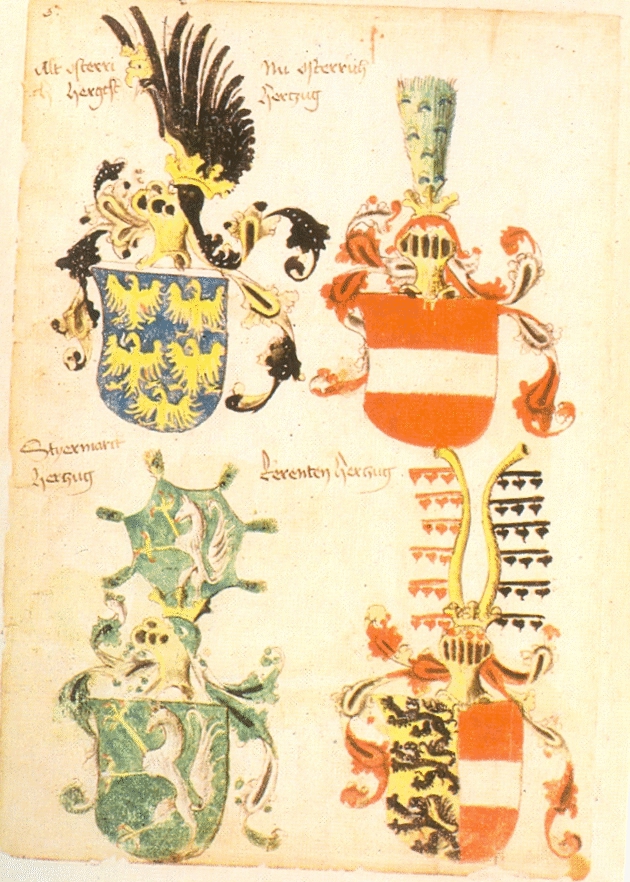 Alt osterri
ch hergst
Nü osterrich
Hertzug
Styermarct
Hertzug
Kerenten Hertzug